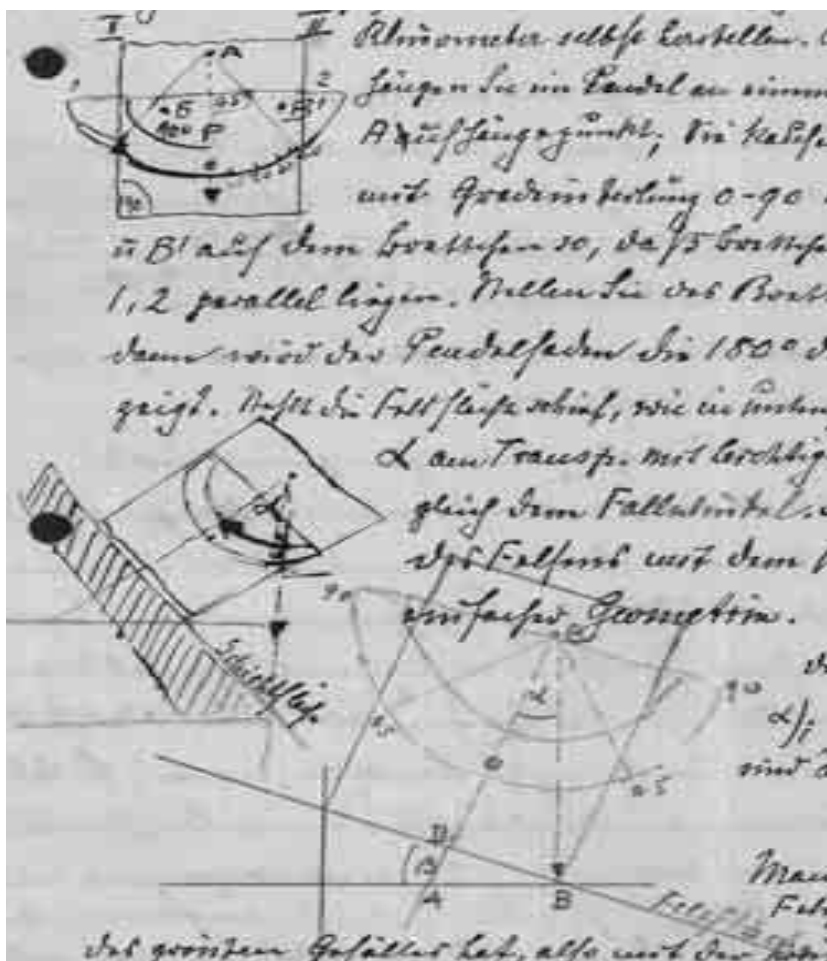 I II
A
1 2
45
B B'
180 P
90
Klinometer selbst herstellen.
hängen Sie ein Pendel an einem
Aufhängepunkt; Sie kaufen
mit Gradeinteilung 0-90
u B' auf dem Brettchen so, daß Brettche
1, 2 parallel liegen. Stellen Sie das Brett
dann wird der Pendelfaden die 180° d
zeigt. Steht die Felsfläche schief, wie in unten
α am Transp. mit
α
gleich dem Fallwinkel.
des Felsens mit dem
90
einfacher Geometrie.
Schichtfläche
90
α
α);
45
0
45
sind
D
β
A B
Man
Fel
Felsfläche
des grössten Gefälles hat, also mit der